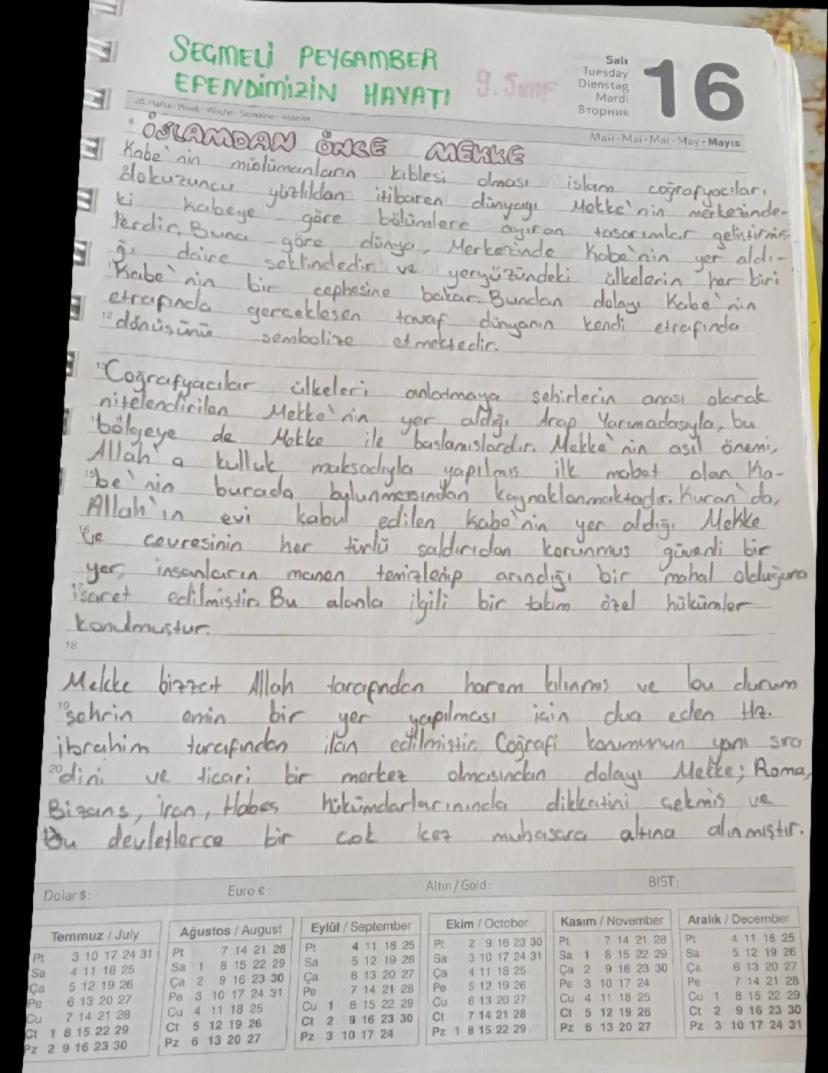 SEÇMELİ PEYGAMBER
EFENDİMİZİN HAYATI
9. Sınıf
Salı
Tuesday
Dienstag
Mardi
Вторник
16
20. Hafta - Week - Woche - Semaine - неделя
Май - Mai - Mai - May - Mayıs
8
İSLAMDAN ÖNCE MEKKE
Kabe'nin müslümanların kıblesi olması islam coğrafyacıları,
dokuzuncu yüzyıldan itibaren dünyayı Mekke'nin merkezinde-
ki kabeye göre bölümlere ayıran tasarımlar geliştirmiş-
lerdir. Buna göre dünya, Merkezinde Kabe'nin yer aldı-
ğı daire şeklindedir ve yeryüzündeki ülkelerin her biri
Kabe'nin bir cephesine bakar. Bundan dolayı Kabe'nin
etrafında gerçekleşen tavaf dünyanın kendi etrafında
12 dönüşünü sembolize etmektedir.
Coğrafyacılar ülkeleri anlatmaya şehirlerin anası olarak
nitelendirilen Mekke'nin yer aldığı Arap Yarımadasıyla, bu
bölgeye de Mekke ile başlamışlardır. Mekke'nin asıl önemi,
Allah'a kulluk maksadıyla yapılmış ilk mabet olan Ka-
15 be'nin burada bulunmasından kaynaklanmaktadır. Kuran'da,
Allah'ın evi kabul edilen Kabe'nin yer aldığı Mekke
ve çevresinin her türlü saldırıdan korunmuş güvenli bir
yer, insanların manen temizlenip arındığı bir mahal olduğuna
17 işaret edilmiştir. Bu alanla ilgili bir takım özel hükümler
konulmuştur.
18
Mekke bizzat Allah tarafından harem kılınmış ve bu durum
19 şehrin emin bir yer yapılması için dua eden Hz.
ibrahim tarafından ilan edilmiştir. Coğrafi konumunun yanı sıra
20 dini ve ticari bir merkez olmasından dolayı Mekke; Roma,
Bizans, iran, Habeş hükümdarlarınında dikkatini çekmiş ve
Bu devletlerce bir çok kez muhasara altına alınmıştır.
Dolar $: Euro €: Altın / Gold: BIST:
Temmuz / July
Pt 3 10 17 24 31
Sa 4 11 18 25
Ça 5 12 19 26
Pe 6 13 20 27
Cu 7 14 21 28
Ct 1 8 15 22 29
Pz 2 9 16 23 30
Ağustos / August
Pt 7 14 21 28
Sa 1 8 15 22 29
Ça 2 9 16 23 30
Pe 3 10 17 24 31
Cu 4 11 18 25
Ct 5 12 19 26
Pz 6 13 20 27
Eylül / September
Pt 4 11 18 25
Sa 5 12 19 26
Ça 6 13 20 27
Pe 7 14 21 28
Cu 1 8 15 22 29
Ct 2 9 16 23 30
Pz 3 10 17 24
Ekim / October
Pt 2 9 16 23 30
Sa 3 10 17 24 31
Ça 4 11 18 25
Pe 5 12 19 26
Cu 6 13 20 27
Ct 7 14 21 28
Pz 1 8 15 22 29
Kasım / November
Pt 6 13 20 27
Sa 7 14 21 28
Ça 1 8 15 22 29
Pe 2 9 16 23 30
Cu 3 10 17 24
Ct 4 11 18 25
Pz 5 12 19 26
Aralık / December
Pt 4 11 18 25
Sa 5 12 19 26
Ça 6 13 20 27
Pe 7 14 21 28
Cu 1 8 15 22 29
Ct 2 9 16 23 30
Pz 3 10 17 24 31